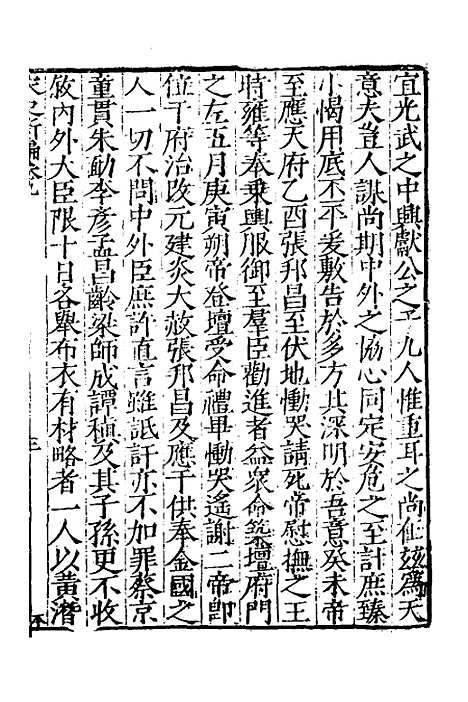 宜光武之中興獻公之子九人惟重耳之尚在兹爲天
意夫豈人謀尚期中外之協心同定安危之至計庶臻
小愒用底丕平爰敷告於多方其深明於吾意癸未帝
至應天府乙酉張邦昌至伏地慟哭請死帝慰撫之王
時雍等奉乗輿服御至羣臣勸進者益衆命築壇府門
之左五月庚寅朔帝登壇受命禮畢慟哭遙謝二帝卽
位于府治改元建炎大赦張邦昌及應干供奉金國之
人一切不問中外臣庶許直言雖詆訐亦不加罪蔡京
童貫朱勔李彦孟昌齡梁師成譚稹及其子孫更不收
敘內外大臣限十日各舉布衣有材略者一人以黄潛
宋史新編卷九